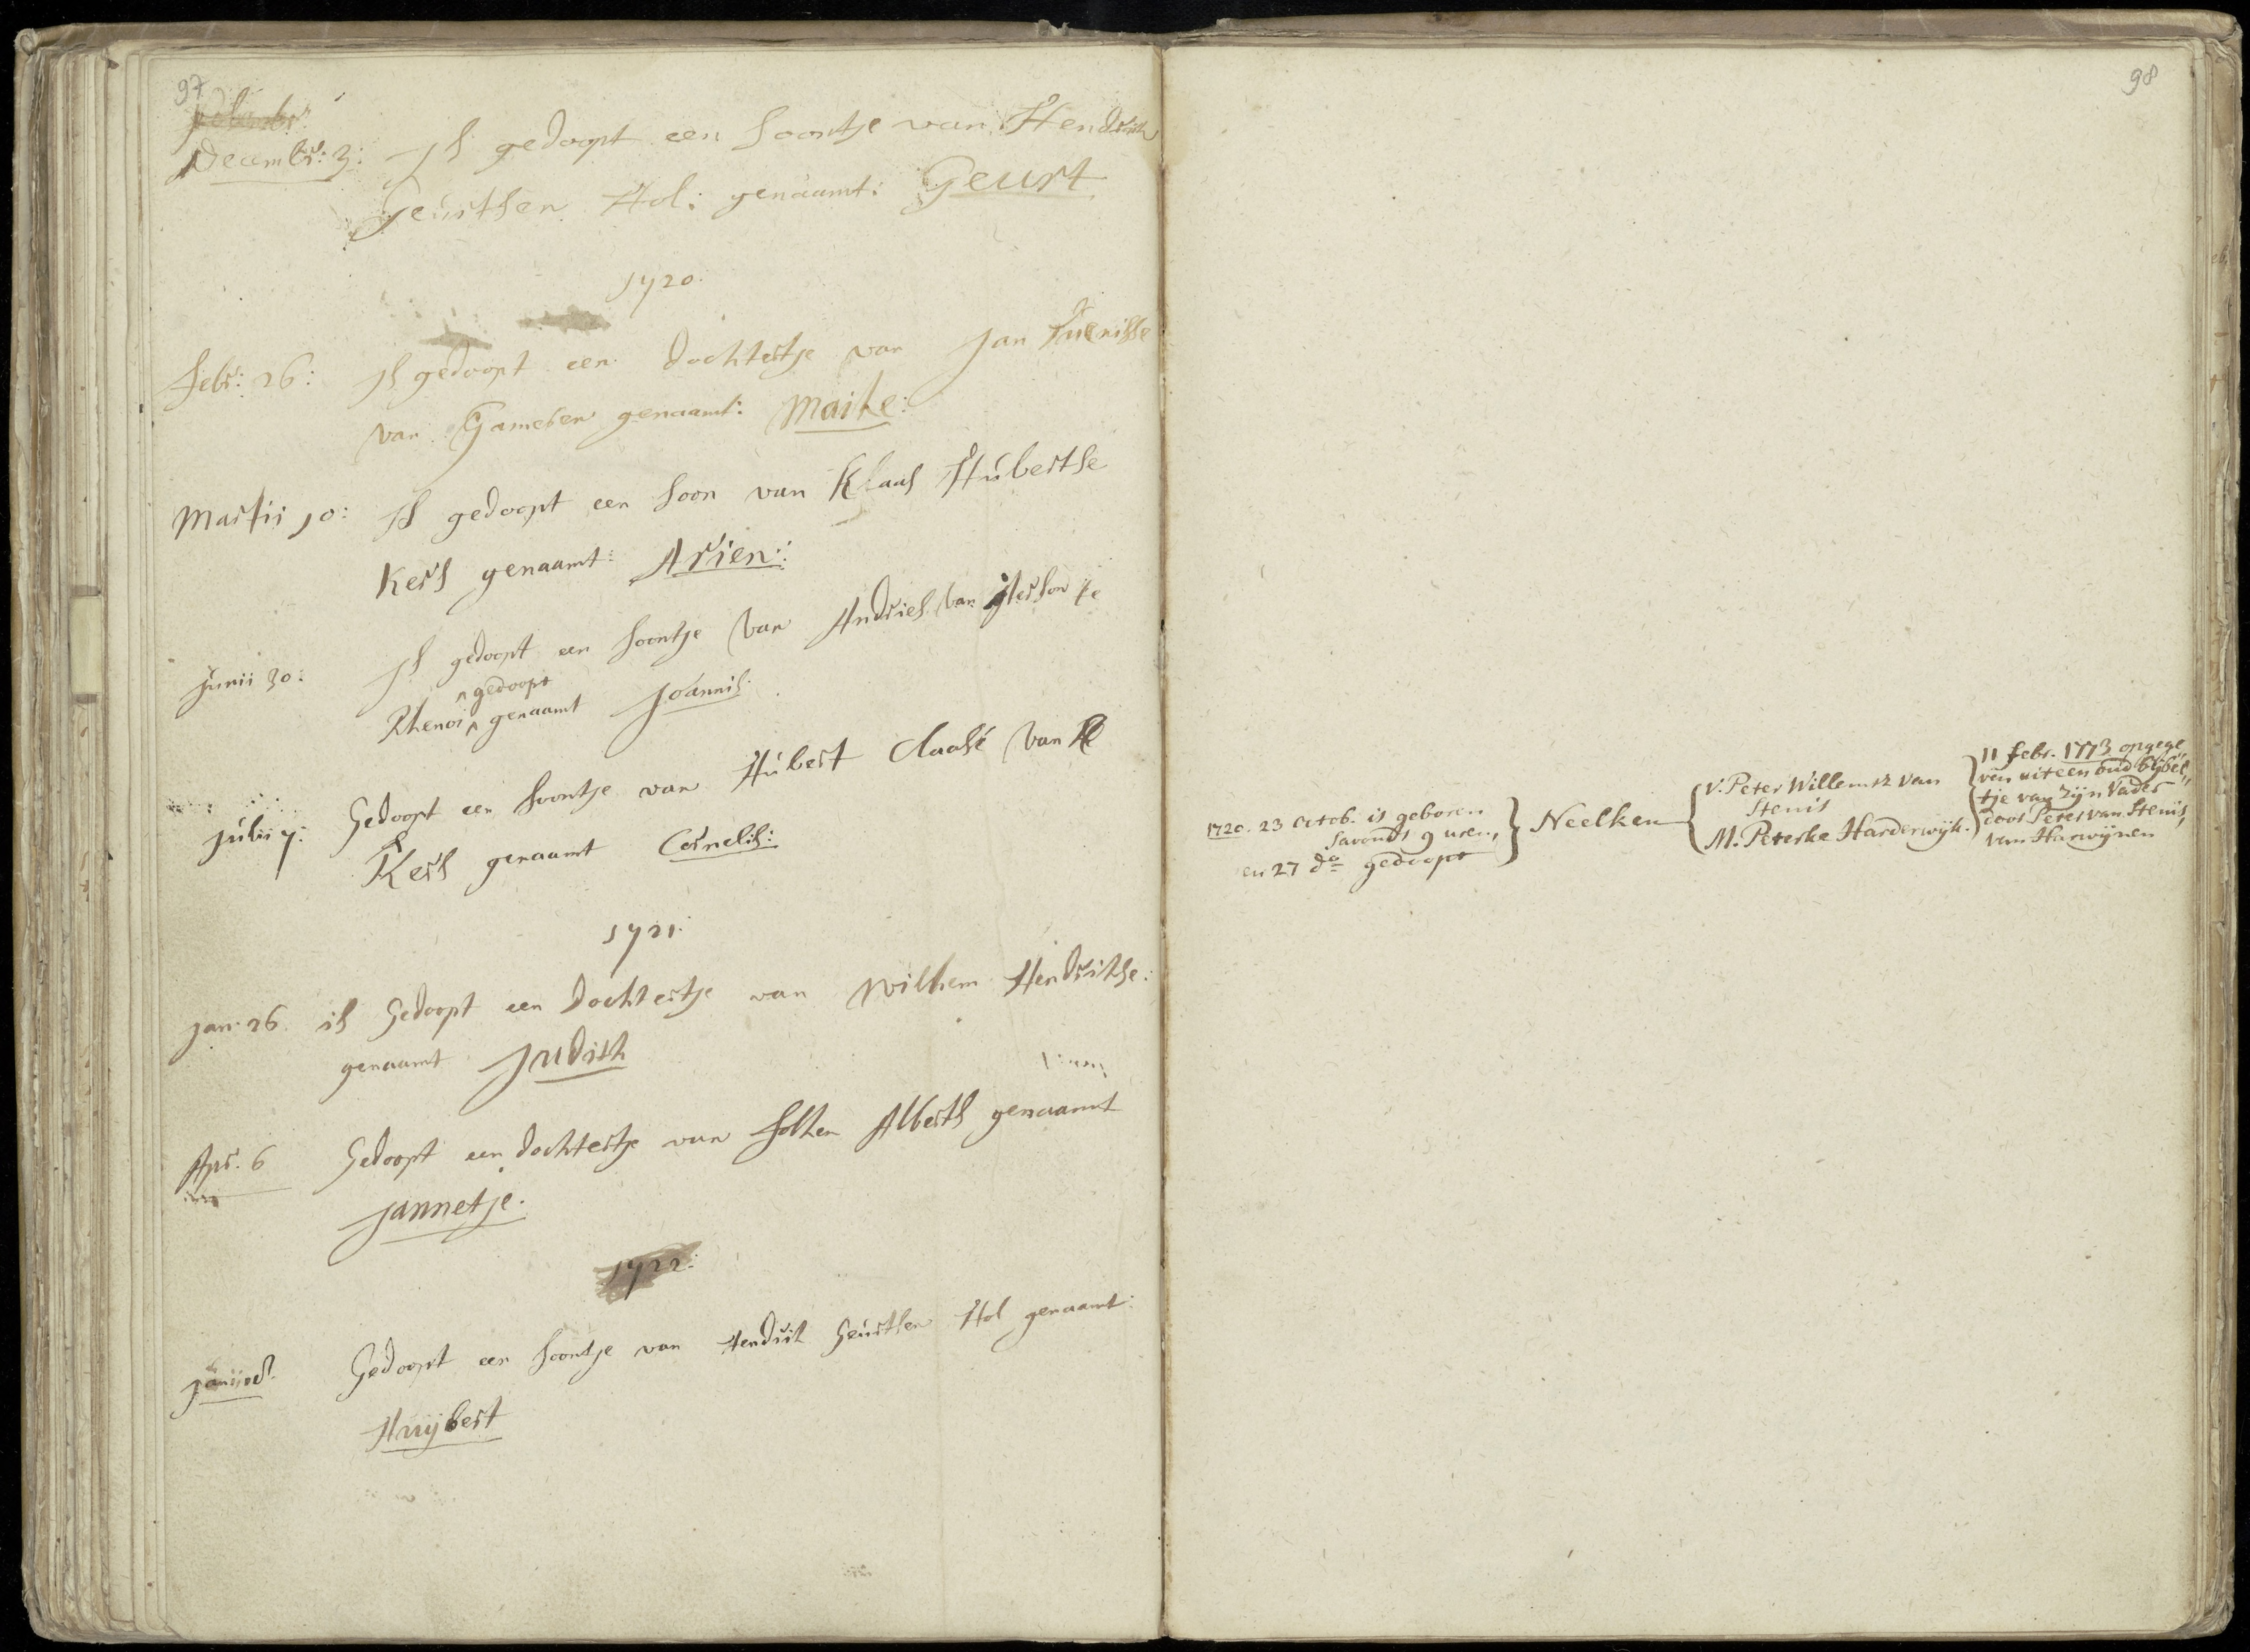 97
Decembr: 3: Js gedoopt een soontje van Hendrik
Geurtsen Hol: genaamt: Geurt
1720.
Febr: 26: Js gedoopt een dochtertje van Jan Tuenisse
van Gameren genaamt: Maike:
Martii 10: Js gedoopt een soon van Klaas Hubertse
Kers genaamt: Arien:
Junii 30: Js gedoopt een soontje van Andries van Iterson te
gedoopt
Rhenoi genaamt Joannis.
Julii 7: Gedoopt een soontje van Hubert Claase van
Kers genaamt Cornelis:
1721.
Jan: 26 is Gedoopt een dochtertje van Willem Hendrikse:
genaamt Judith
Apr. 6 Gedoopt een dochtertje van Folken Alberts genaamt
Jannetje.
1722:
Gedoopt een soontje van Hendrik Geurtsen Hol genaamt:
Huijbert
98
1720. 23 Octob. is geboren
savonds 9 uren,
en 27 do gedoopt
Neelken
V. Peter Willemsz van
Stenis
M. Peterke Harderwijk.
11 febr. 1773 opgege,,
ven uit een oud bijbel,,
tje van zijn Vader
door Peter van Stenis,
van Harwijnen